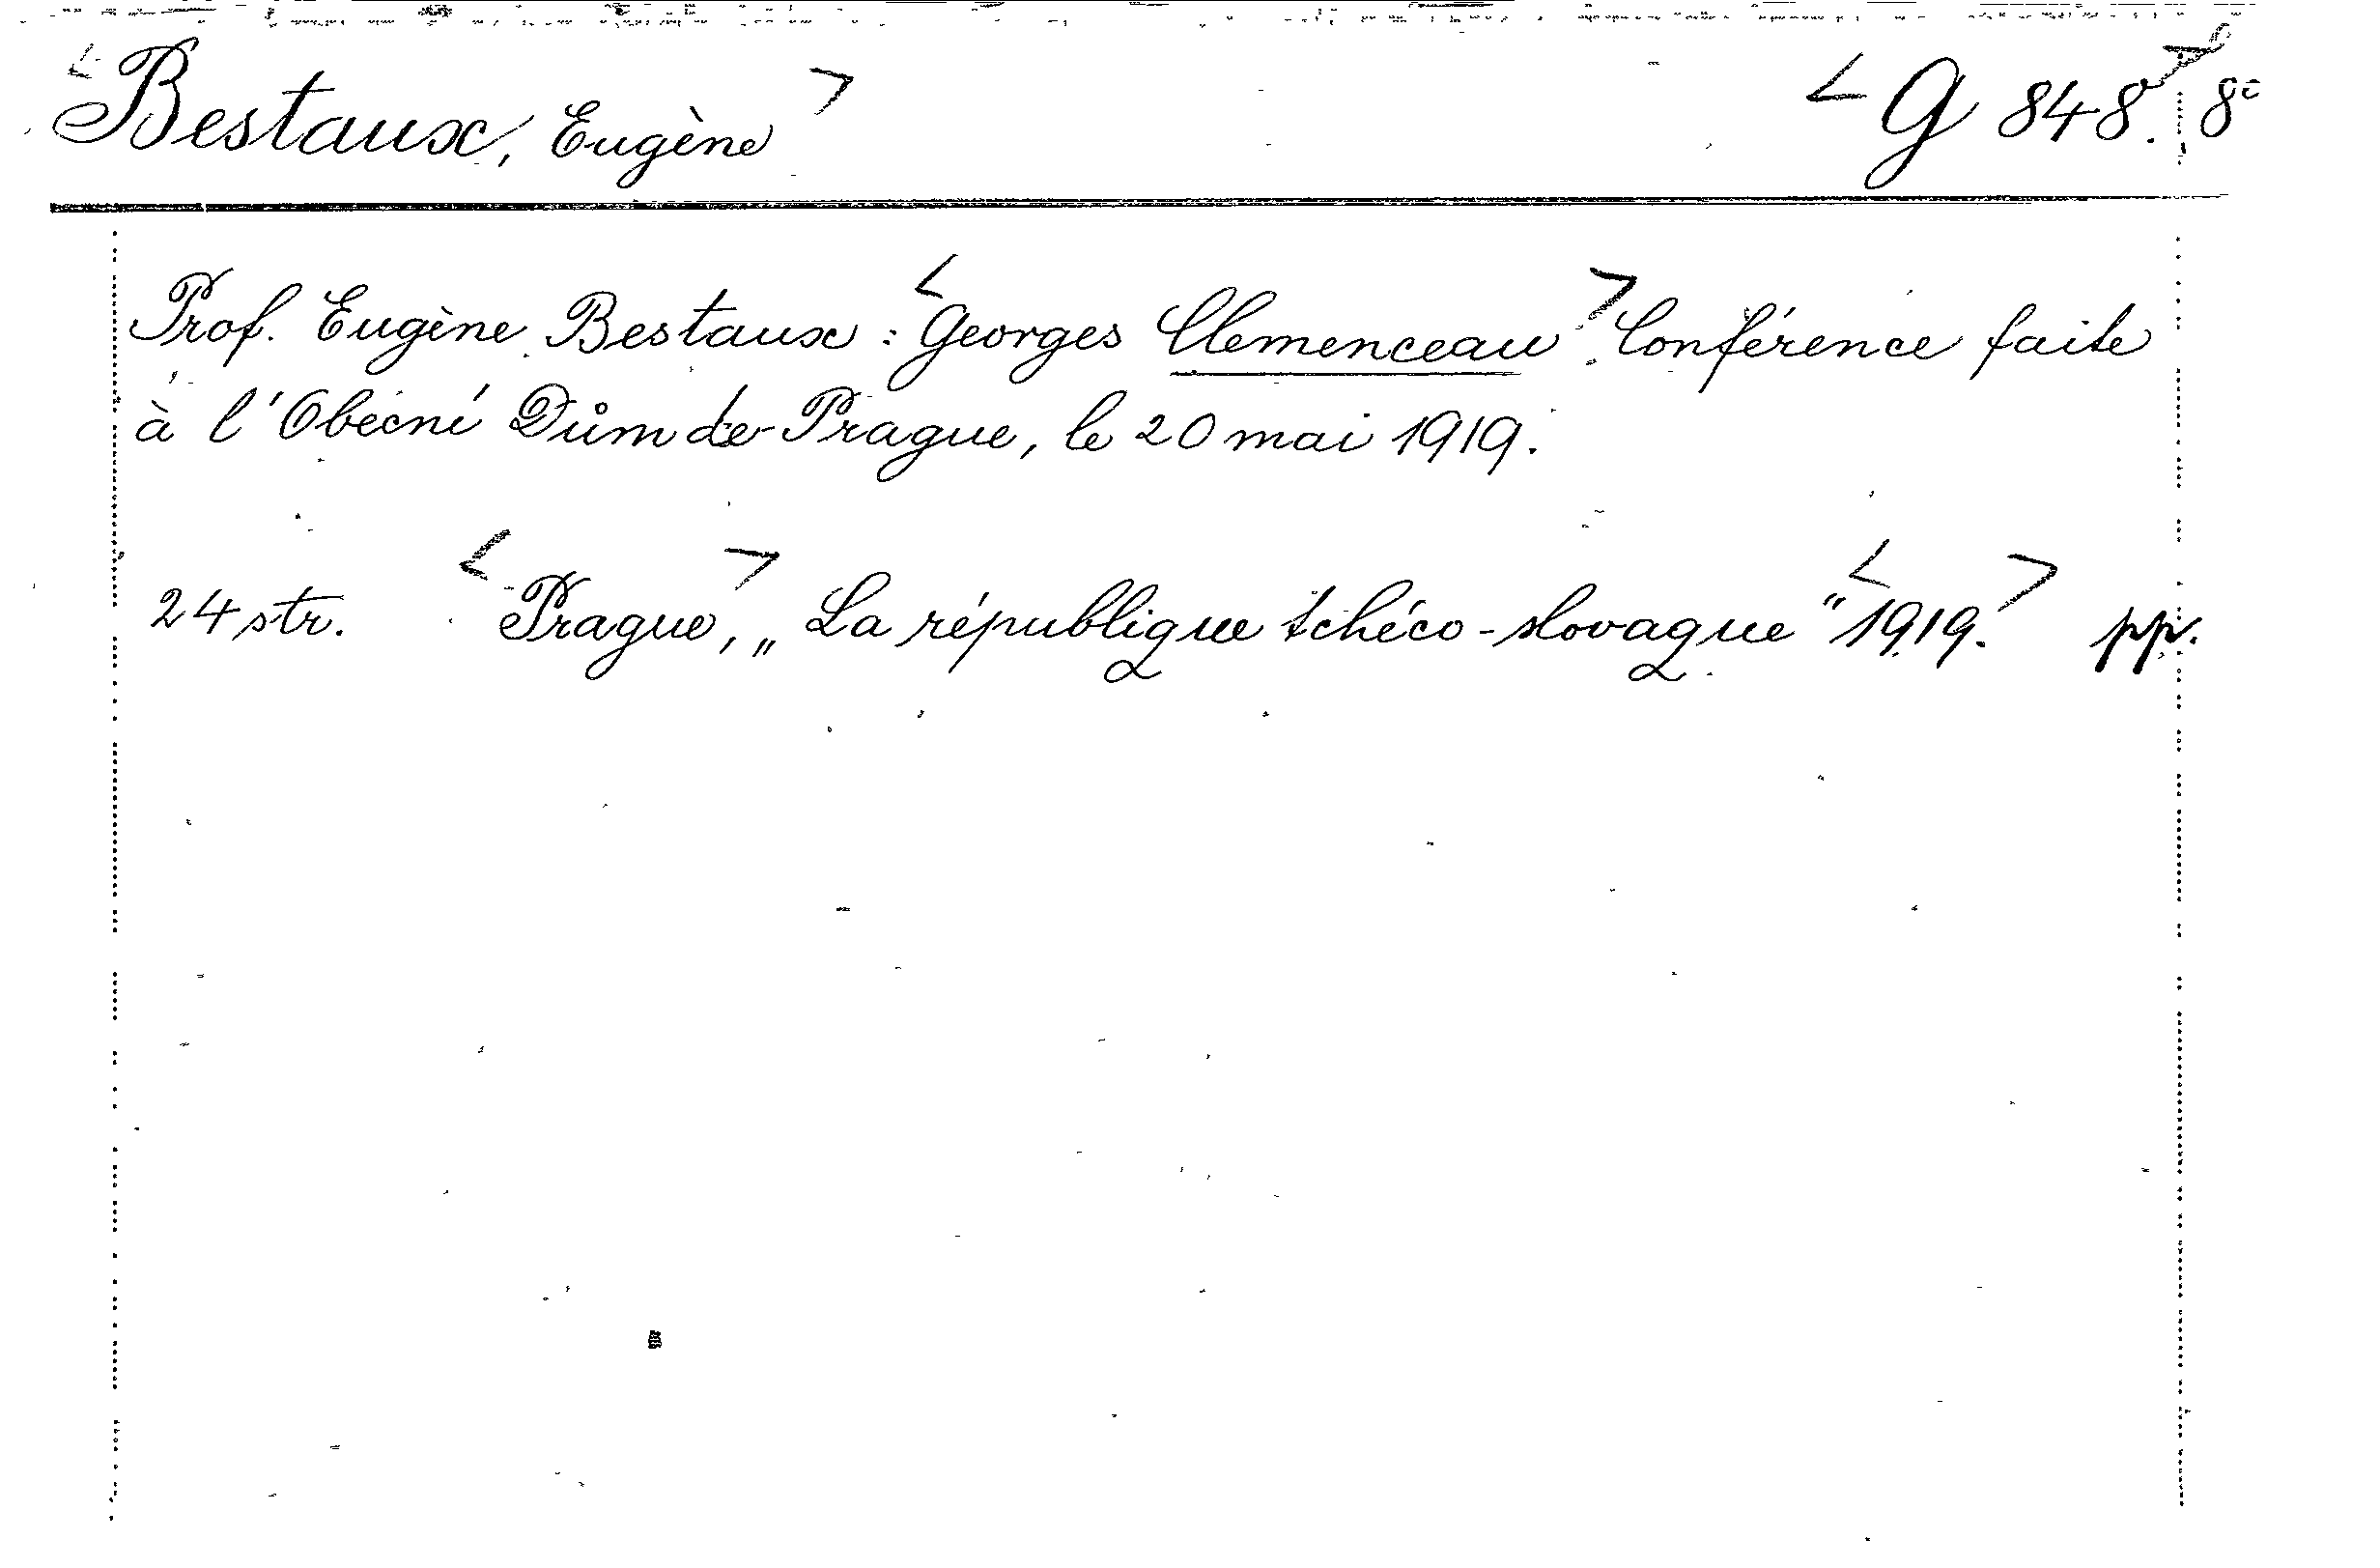 <Bestaux, Eugène> <G 848.> 8°
Prof. Eugène Bestaux: <Georges Clemenceau>. Conférence faite
à l'Obecní Dům de Prague, le 20 mai 1919.
24 str. <Prague,> „La république tchéco-slovaque" <1919.> pp.